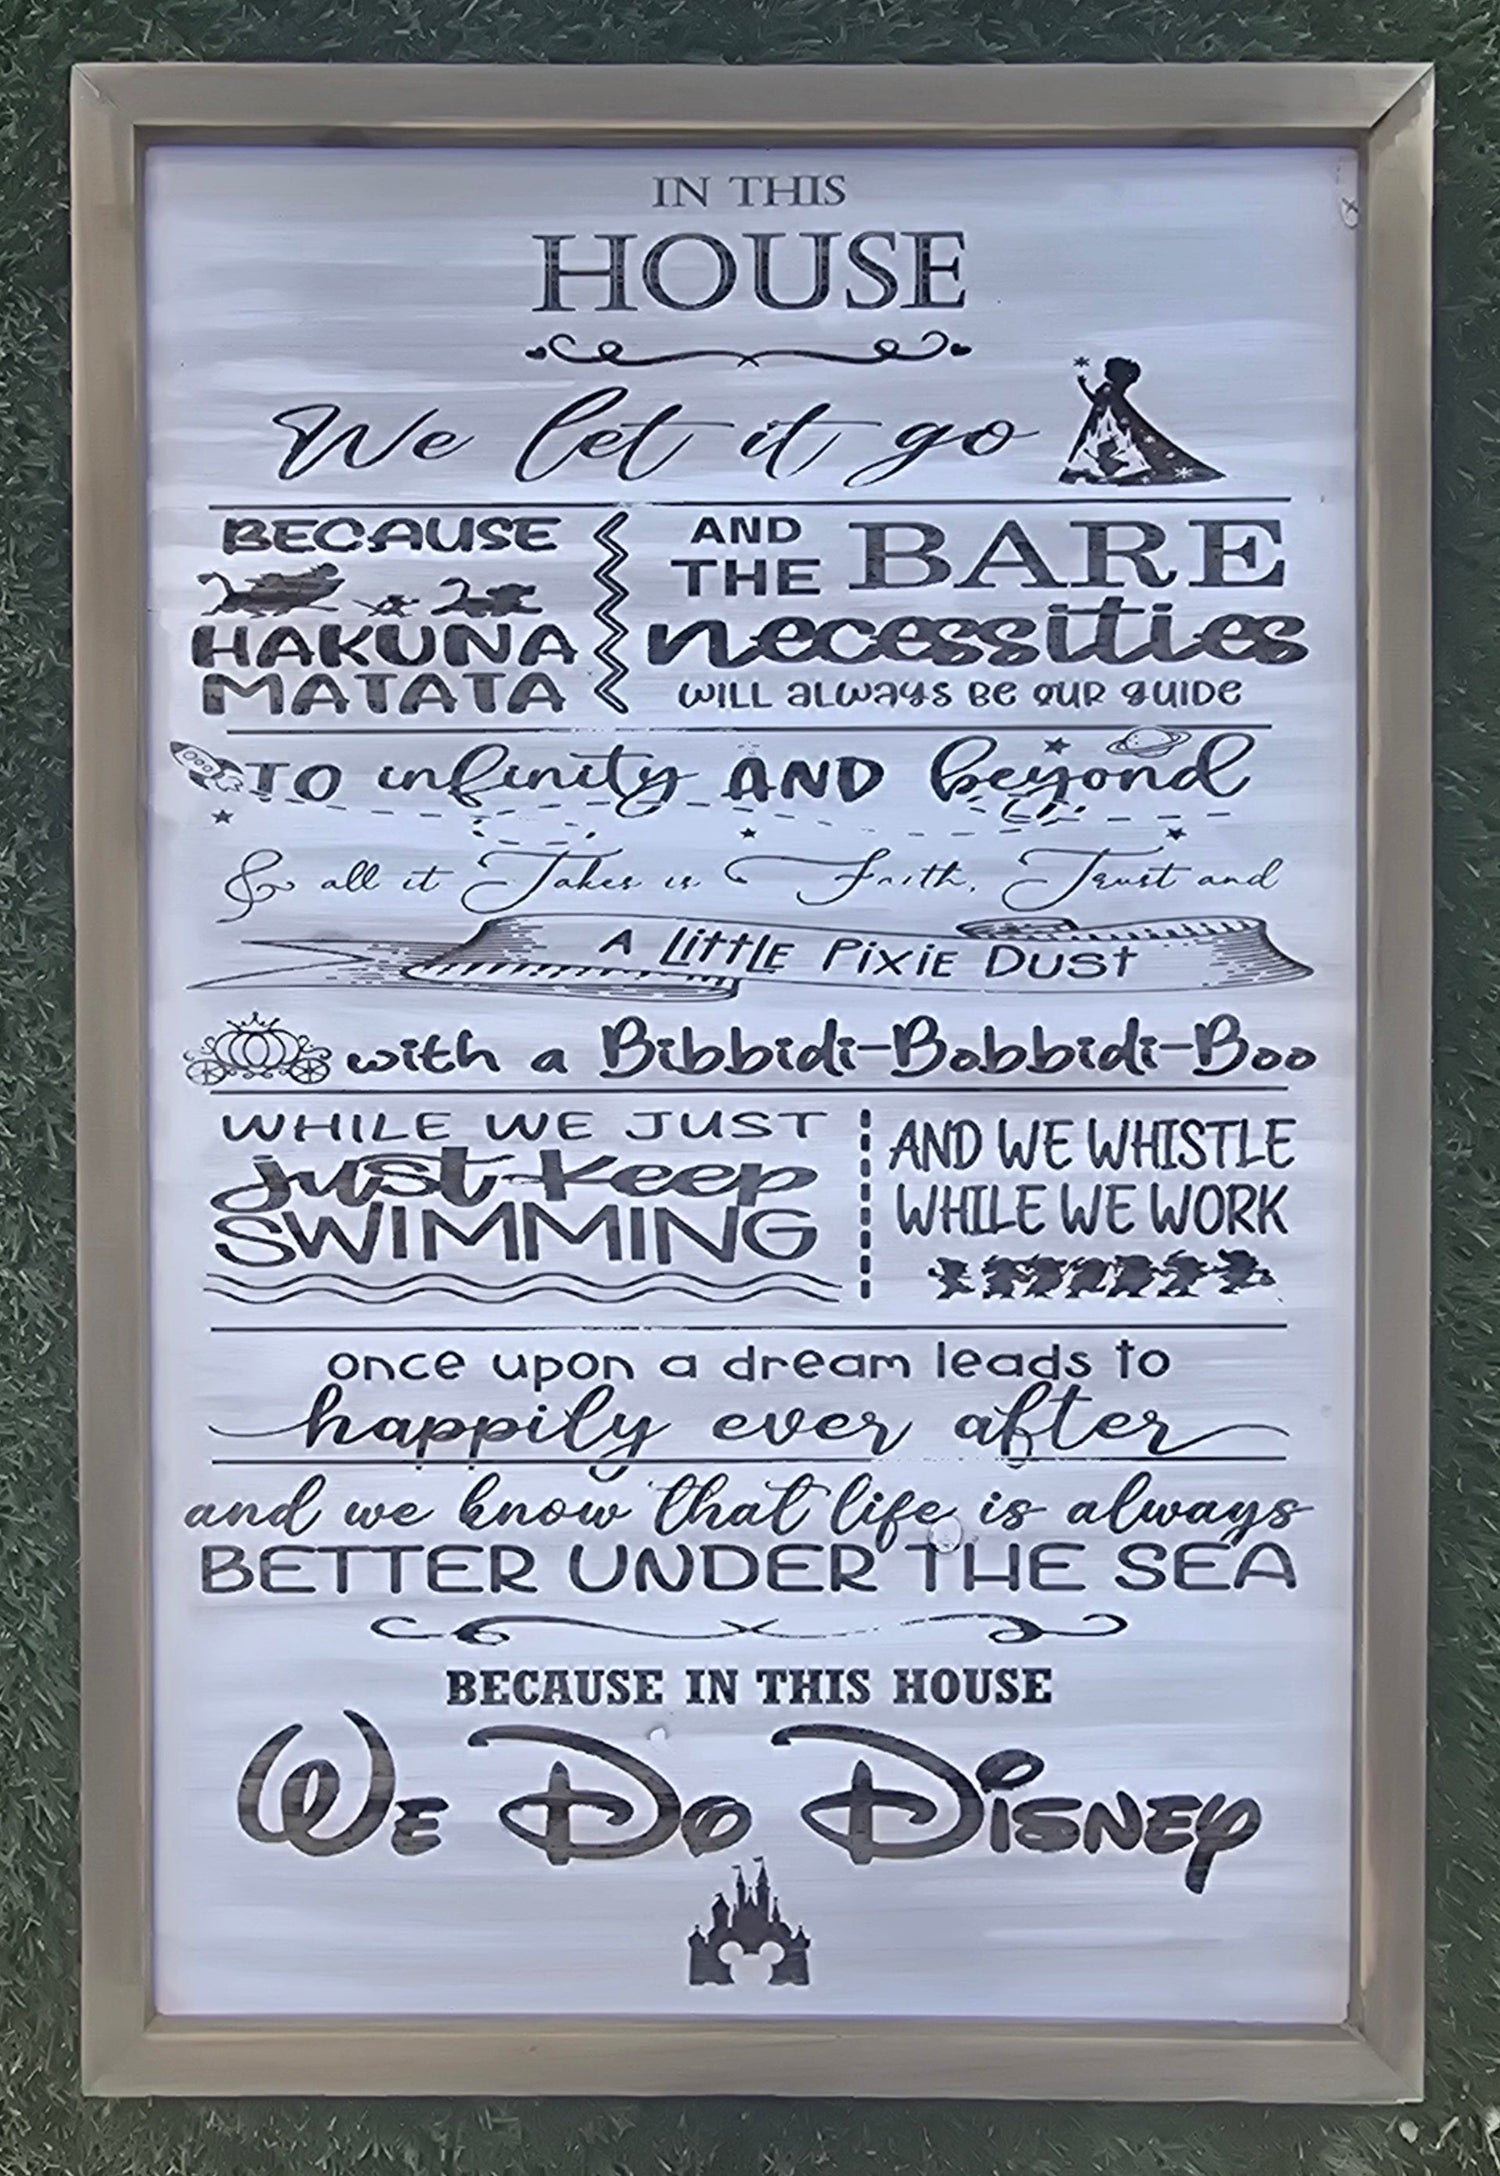 IN THIS
HOUSE
We let it go
BECAUSE
HAKUNA
MATATA
AND
THE BARE
necessities
WILL ALWAYS BE OUR GUIDE
TO infinity AND beyond
& all it Takes is Faith, Trust and
A LITTLE PIXIE DUST
with a Bibbidi-Bobbidi-Boo
WHILE WE JUST
just keep
SWIMMING
AND WE WHISTLE
WHILE WE WORK
once upon a dream leads to
happily ever after
and we know that life is always
BETTER UNDER THE SEA
BECAUSE IN THIS HOUSE
WE DO DISNEY